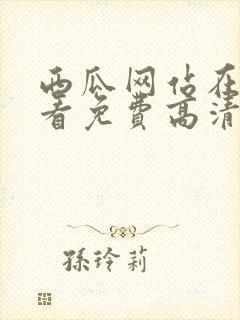 西瓜网估在
看免费高清
孫玲莉